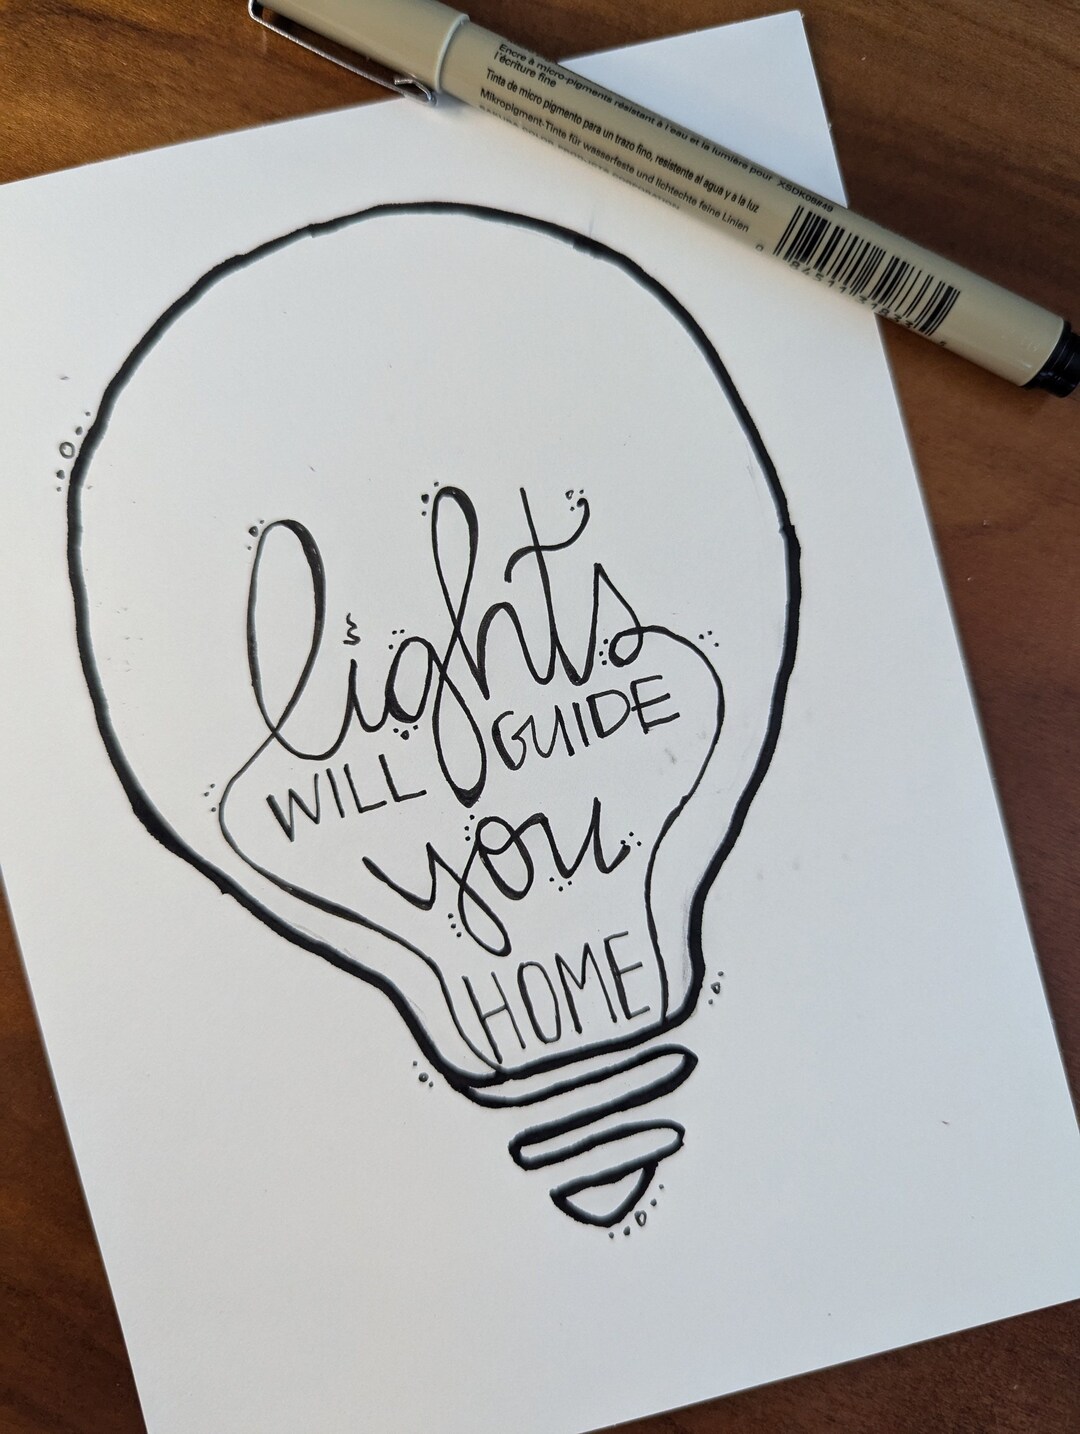 Encre à micro-pigments résistant à l'eau et la lumière pour
l'écriture fine
Tinta de micro pigmento para un trazo fino, resistente al agua y a la luz
Mikropigment-Tinte für wasserfeste und lichtechte feine Linien
XSDK08#49
lights
WILL GUIDE
you
HOME